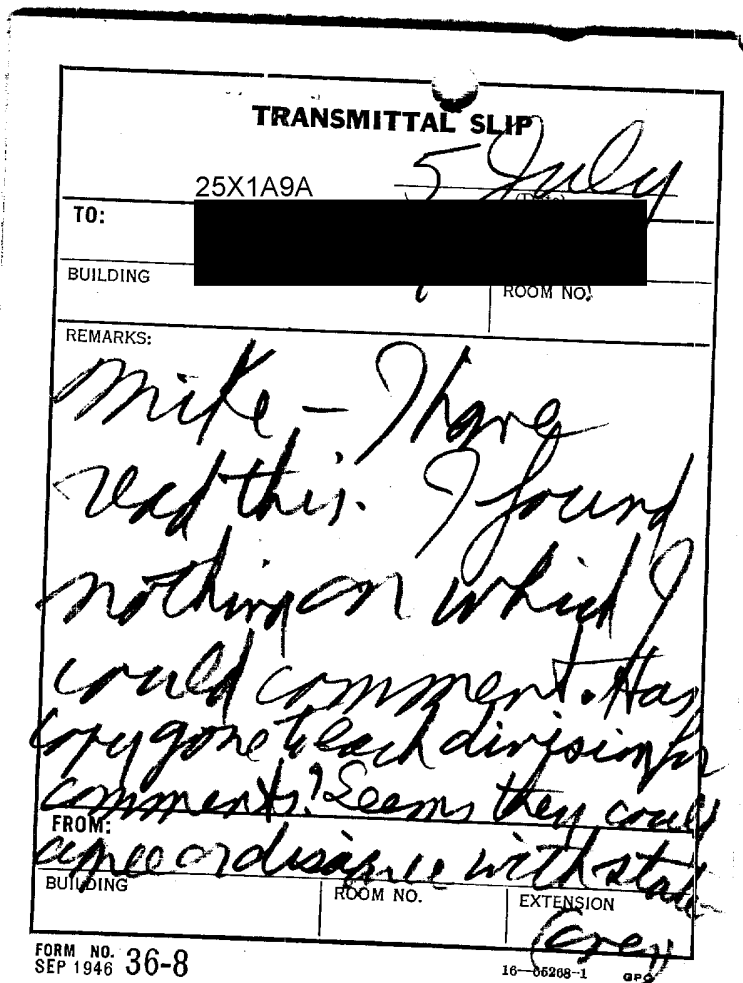 TRANSMITTAL SLIP
5 July
(Date)
25X1A9A
TO:
BUILDING
ROOM NO.
REMARKS:
Mike – I have
read this. I found
nothing on which I
could comment. Has
copy gone to each division for
comments? Seems they could
FROM:
agree or disagree with state-
BUILDING
ROOM NO.
EXTENSION
(over)
FORM NO.
SEP 1946 36-8
16—55268-1 GPO